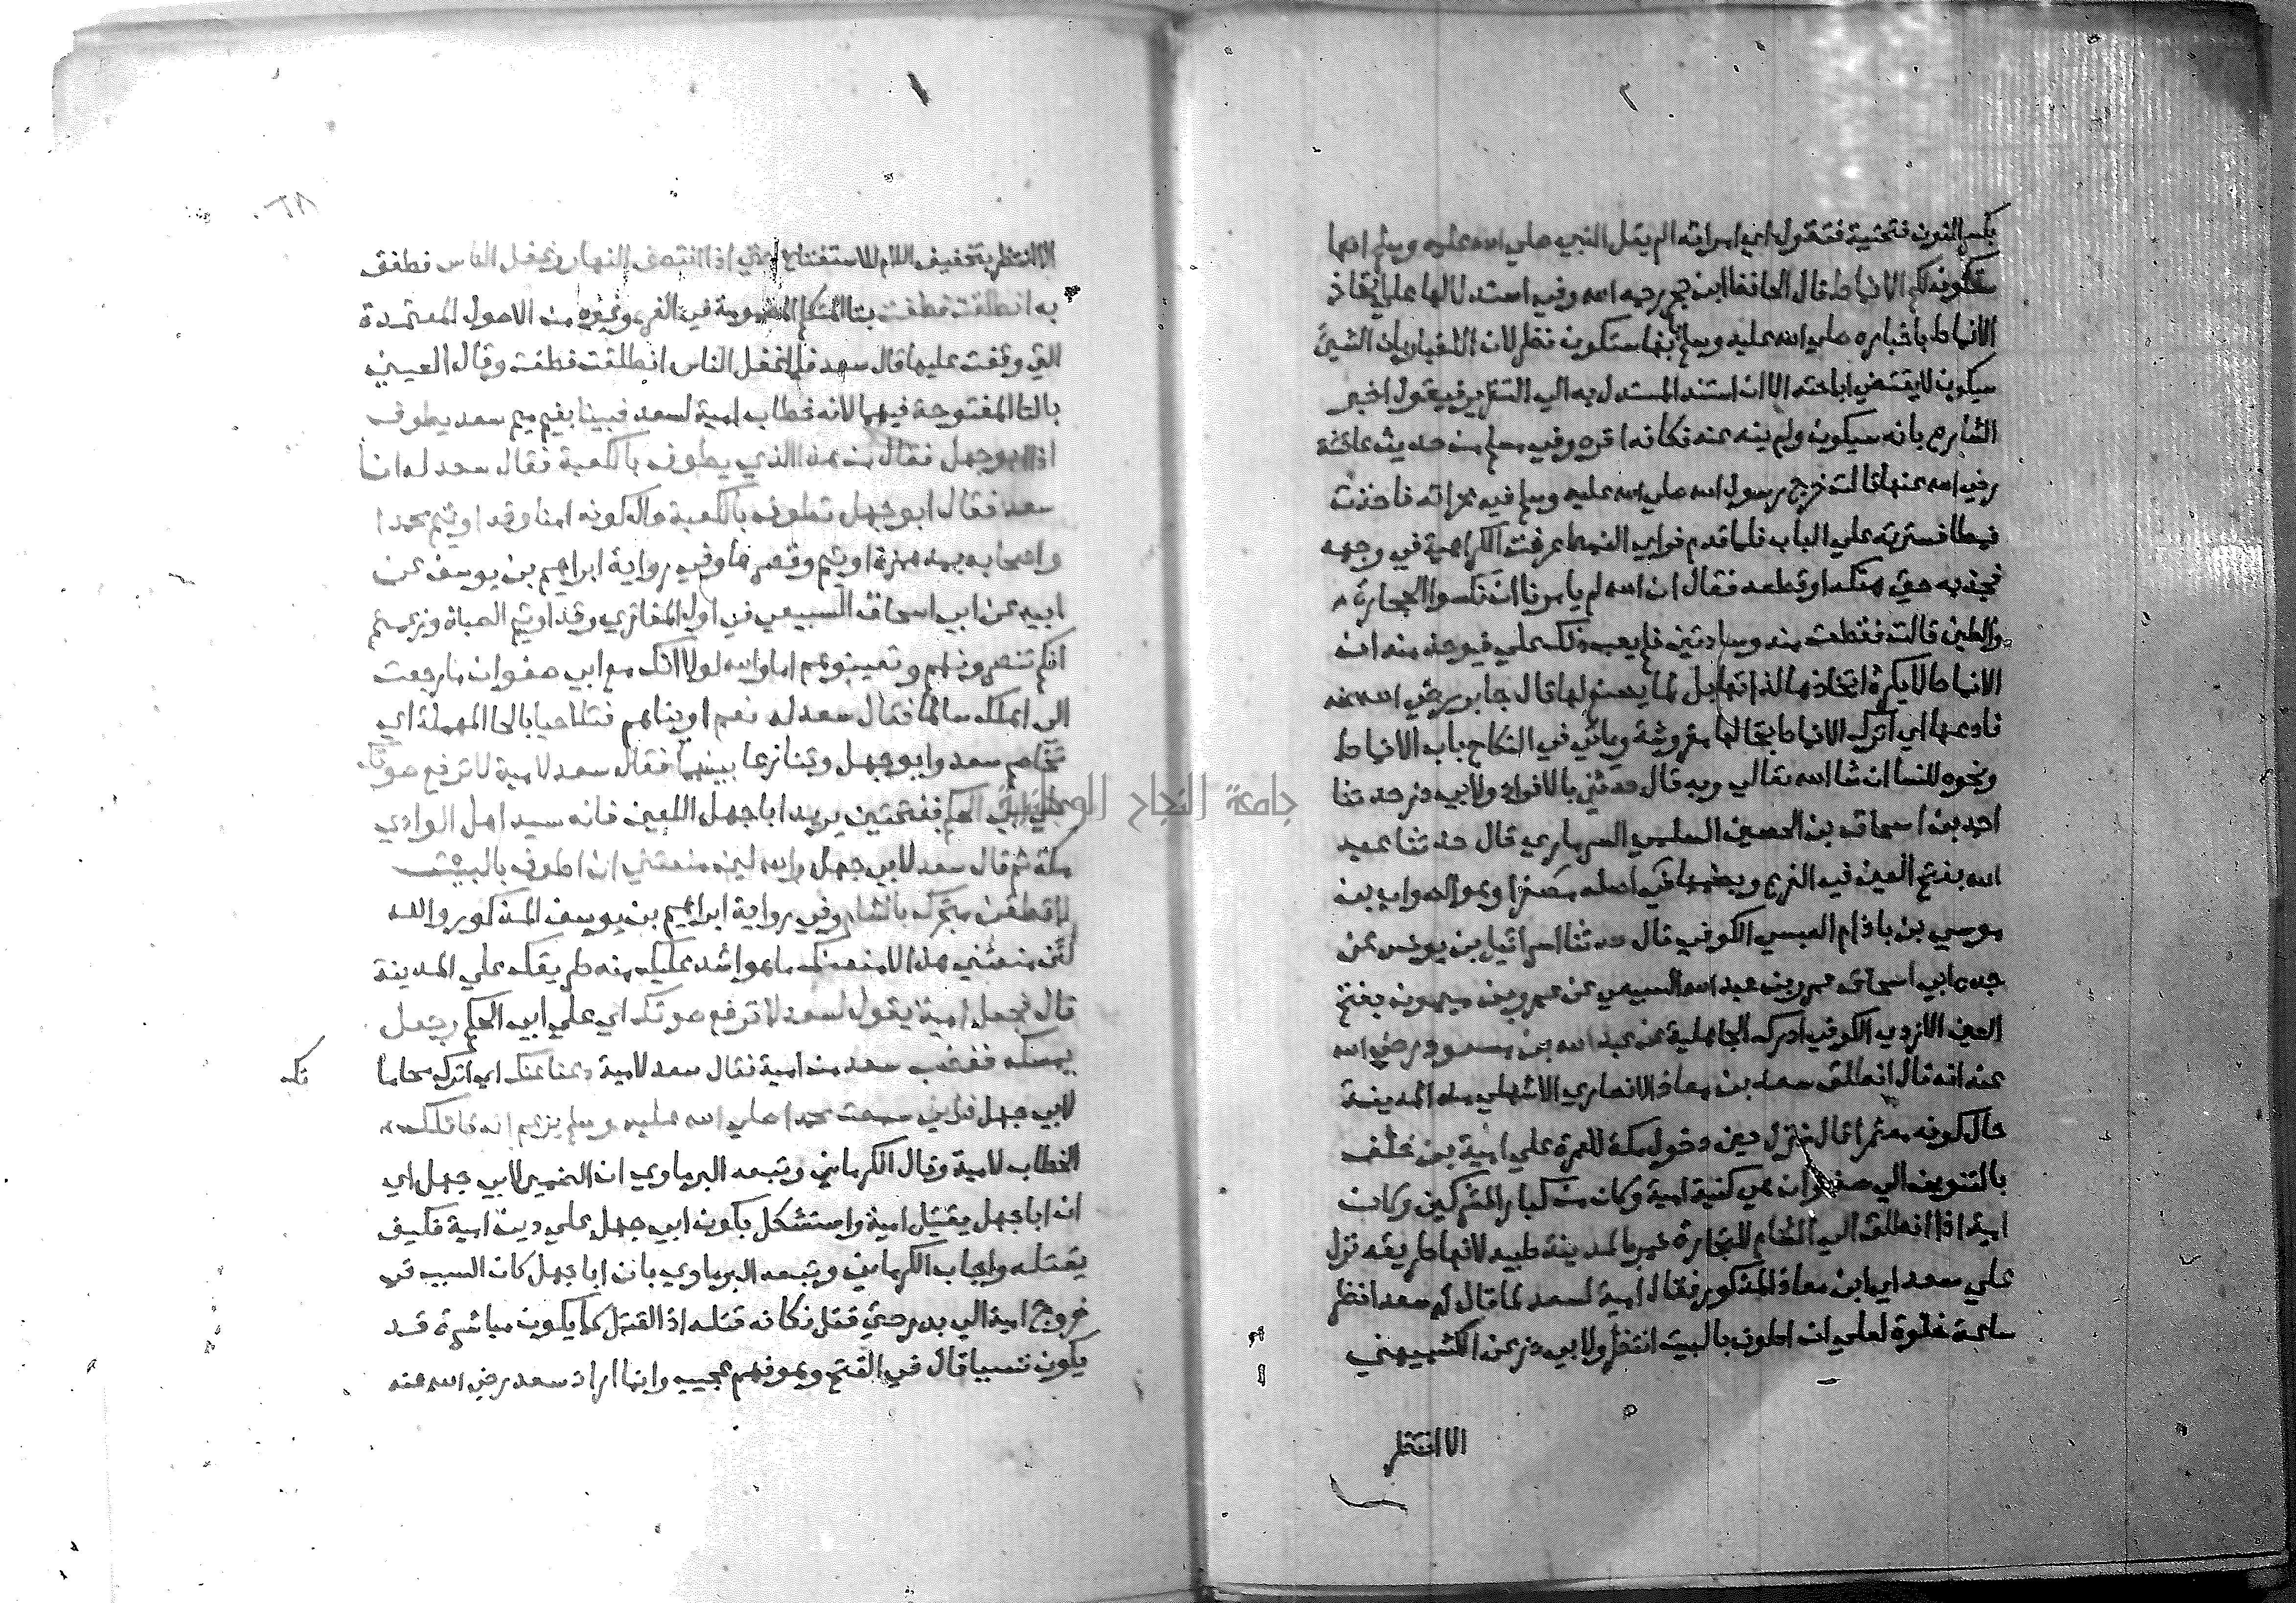 بكسر النون فتحتية فتقول اي امراته الم يقل النبي صلي الله عليه وسلم انها
ستكون لكم الانماط قال الحافظ ابن حجر رحمه الله وفي استدلالها علي اتخاذ
الانماط باخباره صلي الله عليه وسلم بانها ستكون نظر لان الاخبار بان الشي
سيكون لا يقتضي اباحته الا ان استند المستدل به الي التقرير فيقول اخبر
الشارع بانه سيكون ولم ينه عنه فكانه اقره وفي مسلم من حديث عائشة
رضي الله عنها قالت خرج رسول الله صلي الله عليه وسلم في غزاته فاخذت
نمطا فسترته علي الباب فلما قدم فراي النمط عرفت الكراهية في وجهه
فجذبه حتي هتكه او قطعه فقال ان الله لم يامرنا ان نكسوا الحجارة
والطين قالت فقطعت منه وسادتين فلم يعب ذلك علي فيوخذ منه ان
الانماط لا يكره اتخاذها لذاتها بل لما يصنع لها قال جابر رضي الله عنه
فادعها اي اترك الانماط بحالها مفروشة وياتي في النكاح باب الانماط
ونحوه للنسا ان شا الله تعالي وبه قال حدثني بالافراد ولابي ذر حدثنا
احمد بن اسحاق بن الحصين السلمي السرماري قال حدثنا عبيد
الله بفتح العين في الفرع وبضمها في اصله مصغرا وهو الصواب بن
موسي بن باذام العبسي الكوفي قال حدثنا اسرائيل بن يونس عن
جده ابي اسحاق عمرو بن عبد الله السبيعي عن عمرو بن ميمون بفتح
العين الازدي الكوفي ادرك الجاهلية عن عبد الله بن مسعود رضي الله
عنه انه قال انطلق سعد بن معاذ الانصاري الاشهلي من المدينة
حال كونه معتمرا قال فنزل حين دخول مكة للعمرة علي امية بن خلف
بالتنوين ابي صفوان هي كنية امية وكان من كبار المشركين وكان
امية اذا انطلق الي الشام للتجارة فمر بالمدينة طيبه لانها طريقه نزل
علي سعد اي ابن معاذ المذكور فقال امية لسعد لما قال له سعد انظر
ساعة خلوة لعلي ان اطوف بالبيت انتظر ولابي ذر عن الكشميهني
الا انتظر
الا انتظر بتخفيف اللام للاستفتاح حتي اذا انتصف النهار وغفل الناس فطفق
به انطلقت فطفت بتا المتكلم المضمومة في الفرع وغيره من الاصول المعتمدة
التي وقفت عليها قال سعد فلما غفل الناس انطلقت فطفت وقال العيني
بالتا المفتوحة فيهما لانه خطاب امية لسعد فبينا بغير ميم سعد يطوف
اذا ابو جهل فقال من هذا الذي يطوف بالكعبة فقال سعد له انا
سعد فقال ابو جهل تطوف بالكعبة حال كونه امنا وقد اويتم محمدا
واصحابه بمد همزة اويتم وقصرها وفي رواية ابراهيم بن يوسف عن
ابيه عن ابي اسحاق السبيعي في اول المغازي وقد اويتم الصباة وزعمتم
انكم تنصرونهم وتعينونهم اما والله لولا انك مع ابي صفوان ما رجعت
الي اهلك سالما فقال سعد له نعم اويناهم فتلاحيا بالحا المهملة اي
تخاصم سعد وابو جهل وتنازعا بينهما فقال سعد لامية لا ترفع صوتك
علي ابي الحكم بفتحتين يريد ابا جهل اللعين فانه سيد اهل الوادي
مكة ثم قال سعد لابي جهل والله لين منعتني ان اطوف بالبيت
لاقطعن متجرك بالشام وفي رواية ابراهيم بن يوسف المذكور والله
لئن منعتني هذا لامنعنك ما هو اشد عليك منه طريقك علي المدينة
قال فجعل امية يقول لسعد لا ترفع صوتك اي علي ابي الحكم وجعل
يمسكه فغضب سعد من امية فقال سعد لامية دعنا عنك اي اترك محاما
تك
لابي جهل فاني سمعت محمدا صلي الله عليه وسلم يزعم انه قاتلك
الخطاب لامية وقال الكرماني وتبعه البرماوي ان الضمير لابي جهل اي
ان ابا جهل يقتل امية واستشكل بكون ابي جهل علي دين امية فكيف
يقتله واجاب الكرماني وتبعه البرماوي بان ابا جهل كان السبب في
خروج امية الي بدر حتي قتل فكانه قتله اذ القتل كما يكون مباشرة قد
يكون تسببا قال في الفتح وهو فهم عجيب وانما اراد سعد رضي الله عنه
جامعة النجاح الوطنية